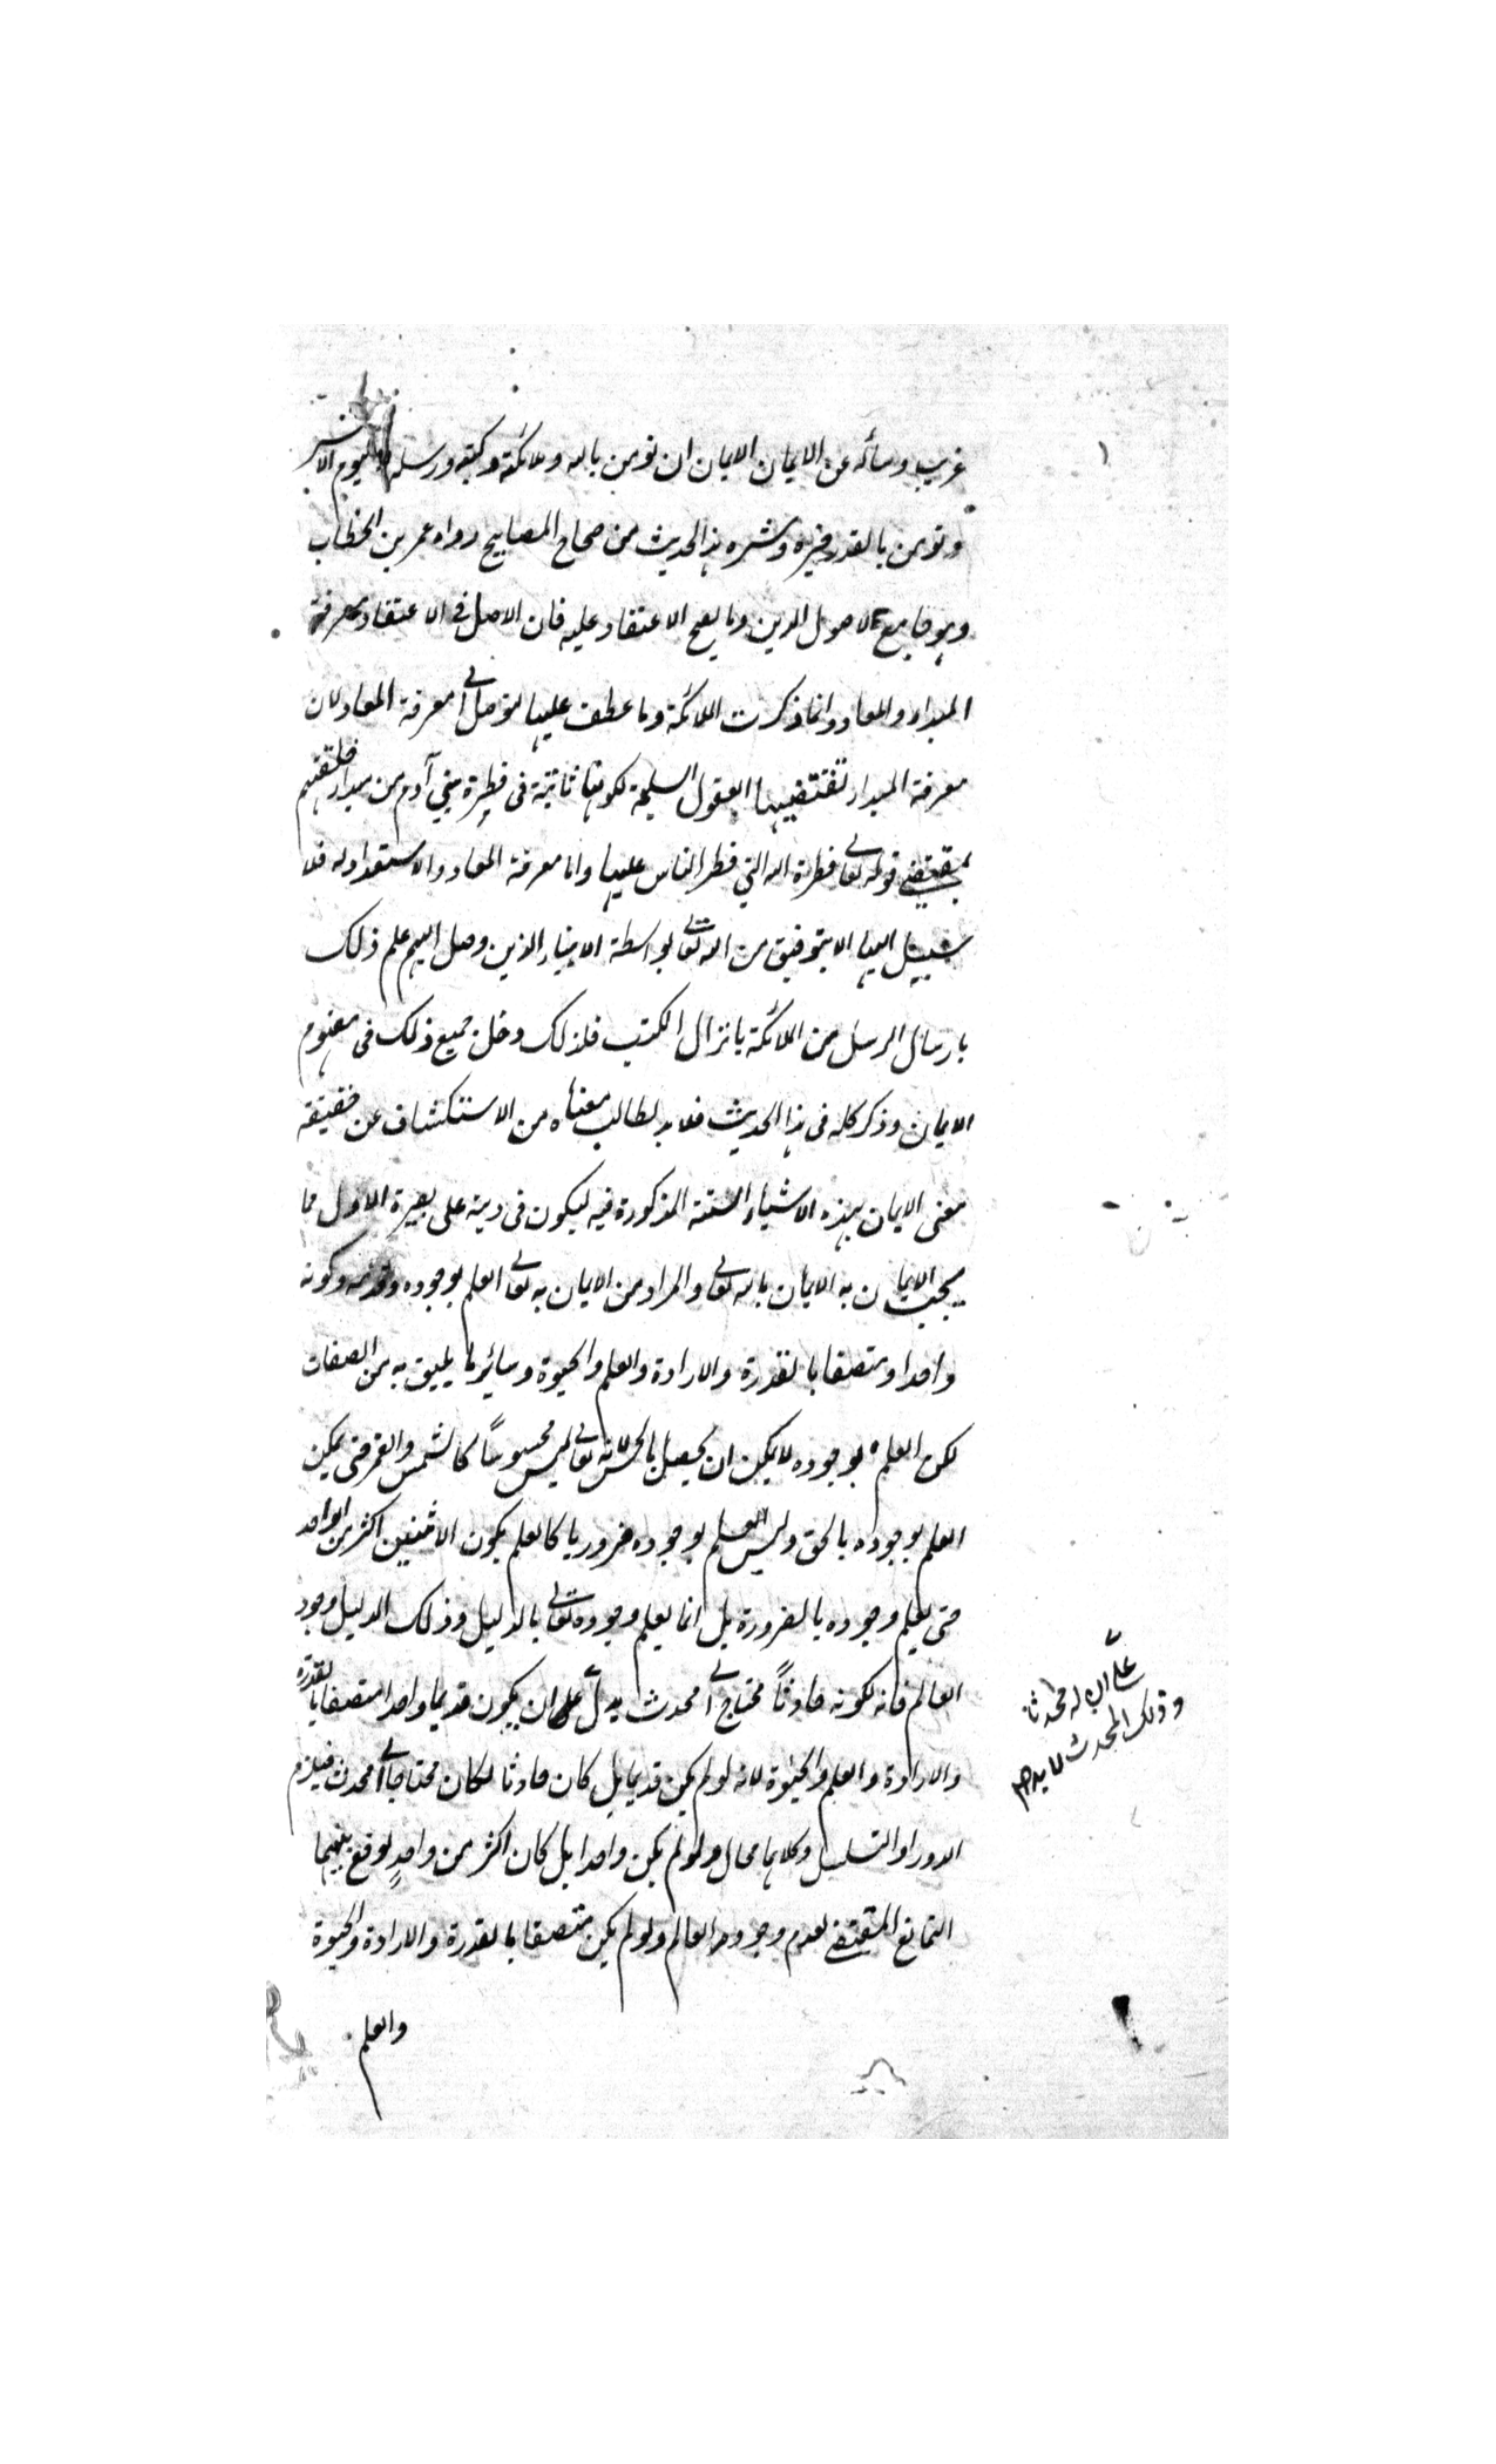 غريب وسأله عن الايمان الايمان ان تؤمن بالله وملائكته وكتبه ورسله واليوم الاخر
وتؤمن بالقدر خيره وشره هذا الحديث من صحاح المصابيح رواه عمر بن الخطاب
وهو جامع لاصول الدين وما يصح الاعتقاد عليه فان الاصل في الاعتقاد معرفة
المبداء والمعاد وانما ذكرت الملائكة وما عطف عليها لتوصل الى معرفة المعاد لان
معرفة المبداء تقتضيها العقول السليمة لكونها ثابتة في فطرة بني آدم من مبداء خلقتهم
بمقتضى قوله تعالى فطرة الله التي فطر الناس عليها واما معرفة المعاد والاستعداد له فلا
سبيل اليها الا بتوفيق من الله تعالى بواسطة الانبياء الذين وصل اليهم علم ذلك
بارسال الرسل من الملائكة بانزال الكتب فلذلك دخل جميع ذلك في مفهوم
الايمان وذكر كله في هذا الحديث فلا بد لطالب معناه من الاستكشاف عن حقيقة
معنى الايمان بهذه الاشياء الستة المذكورة فيه ليكون في دينه على بصيرة الاول مما
يجب الايمان به الايمان بالله تعالى والمراد من الايمان به تعالى العلم بوجوده وقدمه وكونه
واحدا ومتصفا بالقدرة والارادة والعلم والحيوة وسائر ما يليق به من الصفات
لكن العلم بوجوده لا يمكن ان يحصل بالحس لانه تعالى ليس محسوساً كالشمس والقمر حتى يمكن
العلم بوجوده بالحق وليس العلم بوجوده ضروريا كالعلم بكون الاثنين اكثر من الواحد
حتى يعلم وجوده بالضرورة بل انما يعلم وجوده تعالى بالدليل وذلك الدليل وجود
العالم فانه لكونه حادثاً محتاج الى محدث يدل على ان يكون قديما واحدا متصفا بالقدرة
على ان له محدثا
وذلك المحدث لا بد
والارادة والعلم والحيوة لانه لو لم يكن قديما بل كان حادثا لكان محتاجا الى محدث فيلزم
الدور او التسلسل وكلاهما محال ولو لم يكن واحدا بل كان اكثر من واحدٍ لوقع بينهما
التمانع المقتضى لعدم وجود العالم ولو لم يكن متصفا بالقدرة والارادة والحيوة
والعلم